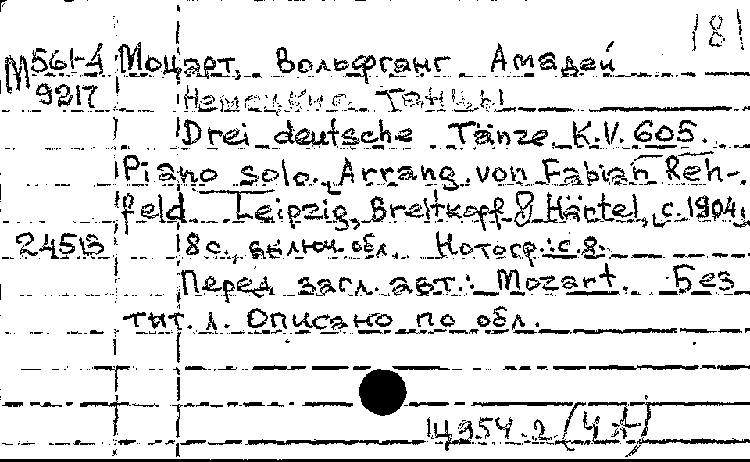 181
М 561-4 Моцарт, Вольфганг Амадей
9217 Немецкие танцы
Drei deutsche Tänze K.V. 605.
Piano solo. Arrang. von Fabian Reh-
feld. Leipzig, Breitkopf & Härtel, с. 1904,
24513 8 с., включ. обл. Нотогр.: с. 8.
Перед загл. авт.: Mozart. Без
тит. л. Описано по обл.